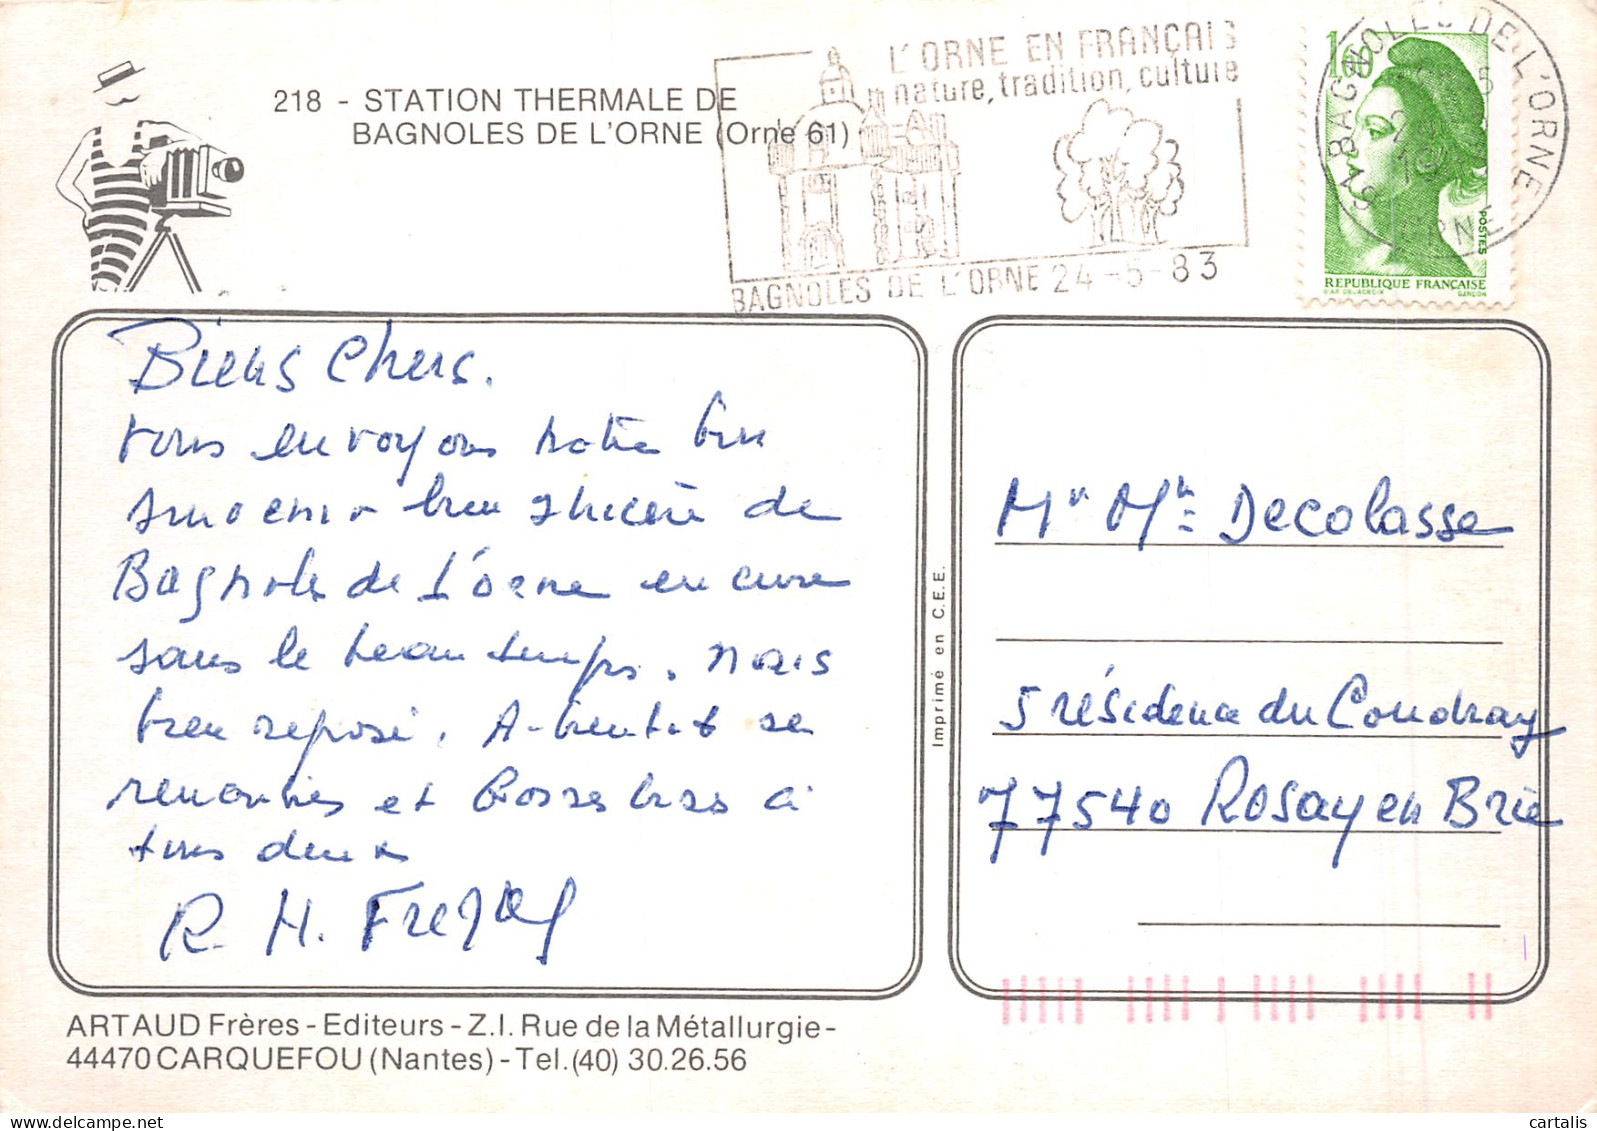 218 - STATION THERMALE DE
BAGNOLES DE L'ORNE (Orne 61)
L'ORNE EN FRANÇAIS
nature, tradition, culture
BAGNOLES DE L'ORNE 24-5-83
BAGNOLES DE L'ORNE
ORNE
1,60
POSTES
REPUBLIQUE FRANÇAISE
D'AP. DELACROIX GANDON
Biens Chers.
vous envoyons notre bon
bien sincère de
Bagnoles de l'orne en cure
sans le beau temps. mais
bien reposé. A-bientot se
rencontrer et Grosses bises à
tous deux
R. H.
Imprimé en C.E.E.
Mr Me Decolasse
5 résidence du Coudray
77540 Rosay en Brie
ARTAUD Frères - Editeurs - Z.I. Rue de la Métallurgie -
44470 CARQUEFOU (Nantes) - Tel. (40) 30.26.56
cartalis